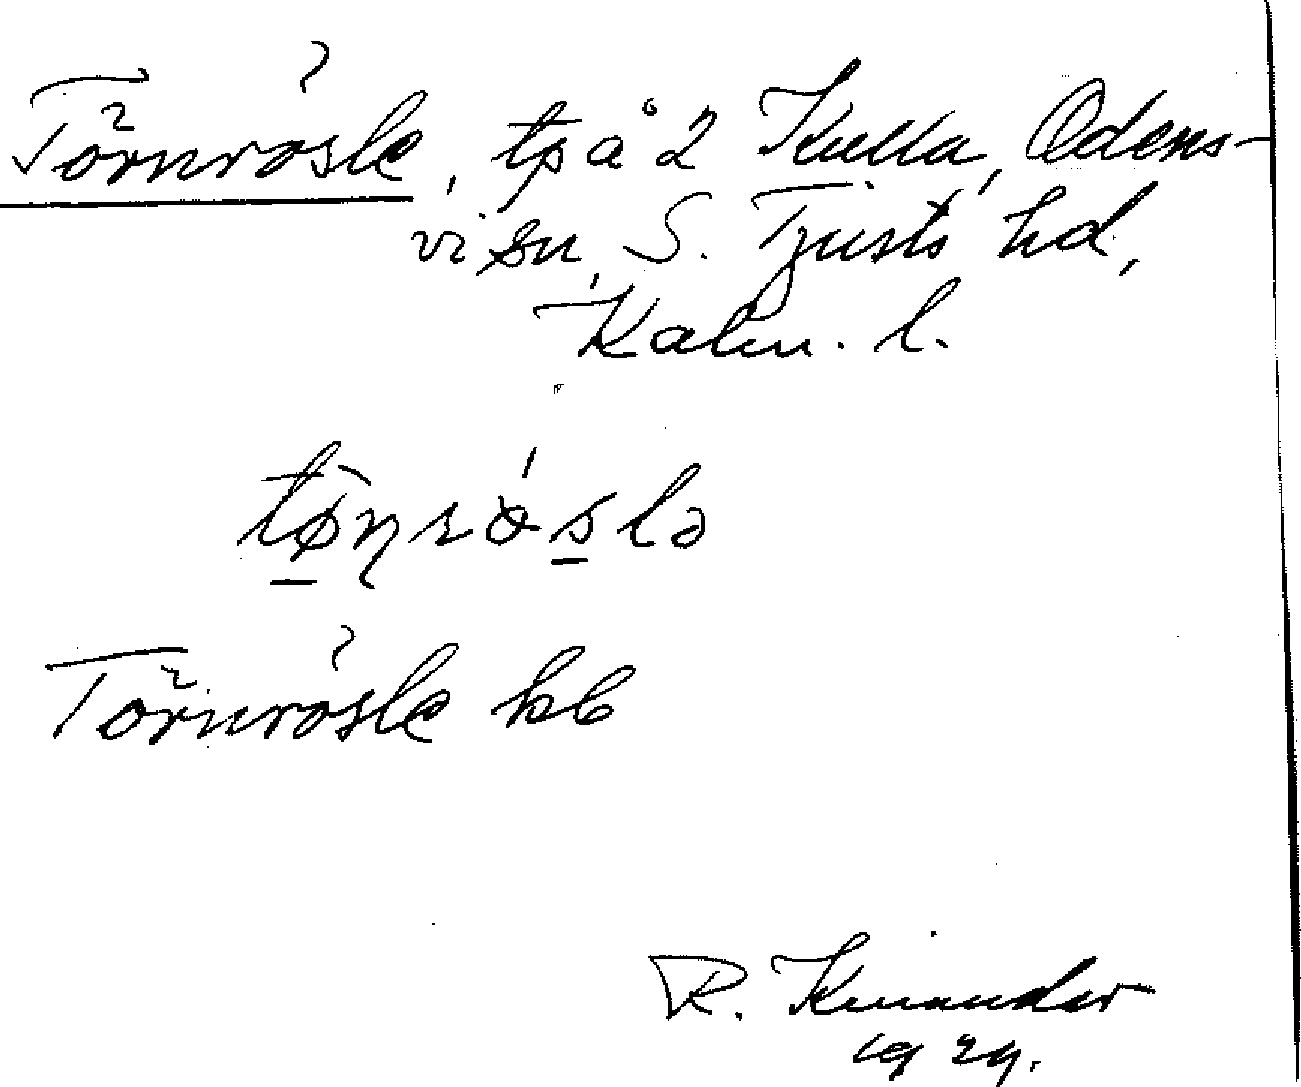 Törnrösle, tp å 2 Kulla, Odens-
vi sn, S. Tjusts hd,
Kalm. l.
tø̀ɳrǿslə
Törnrösle kb
R. Kinander
1929.